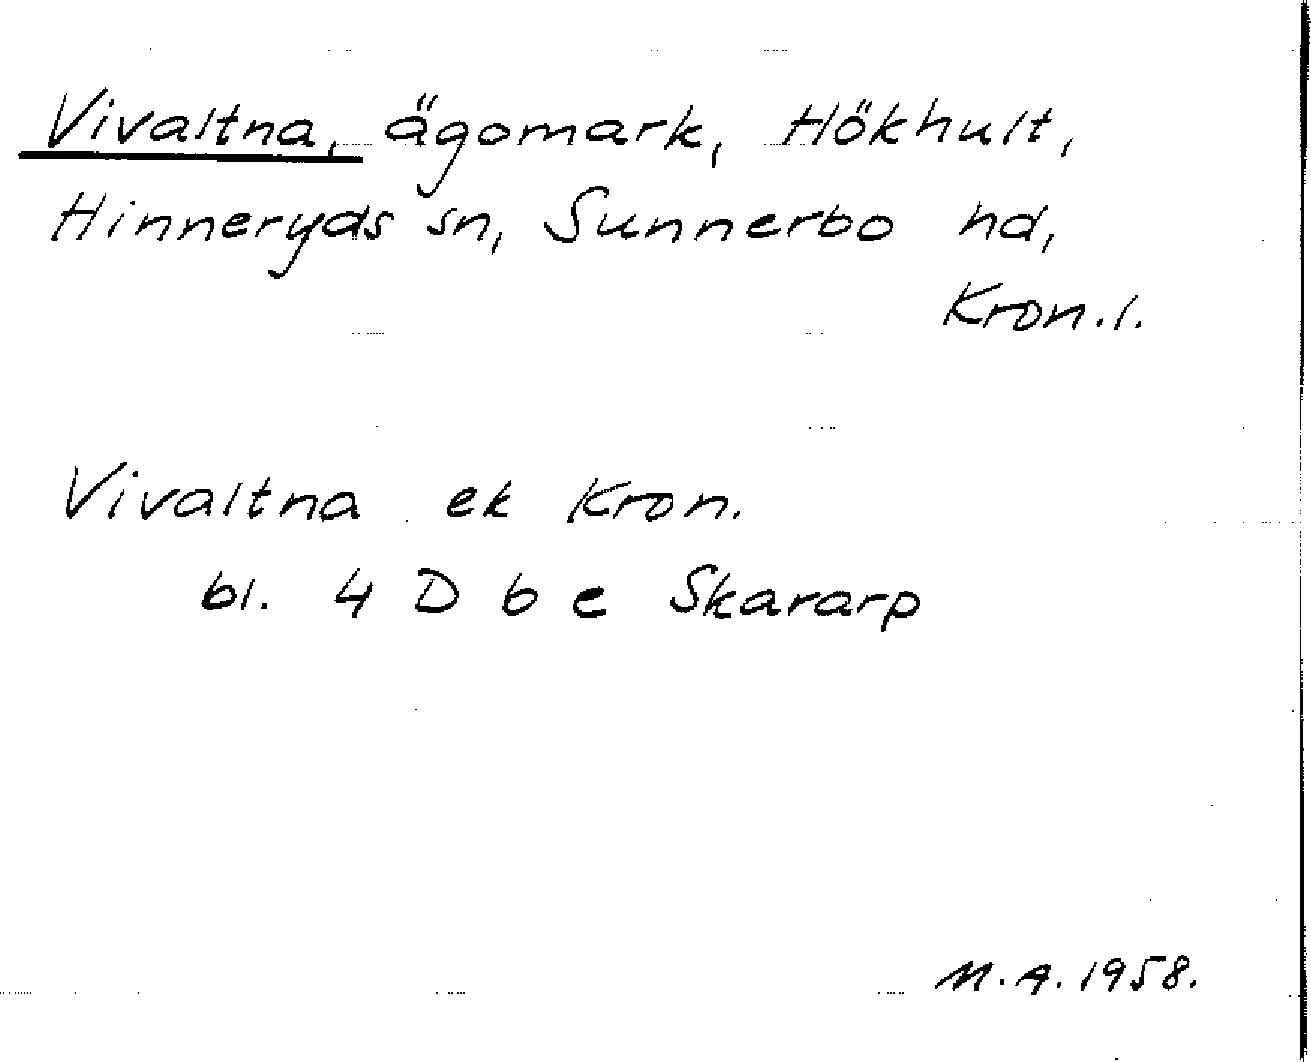 Vivaltna, ägomark, Hökhult,
Hinneryds sn, Sunnerbo hd,
Kron.l.
Vivaltna ek Kron.
bl. 4 D b e Skararp
M.A. 1958.